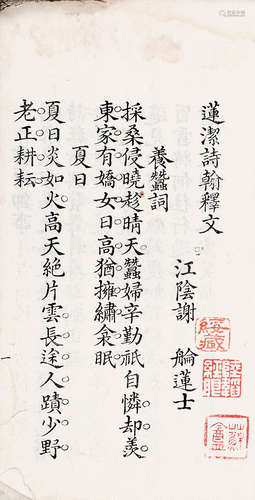 蓮潔詩翰釋文
江陰謝　觮蓮士
養蠶詞
採桑侵曉趁晴天蠶婦辛勤祇自憐却羡
東家有嬌女日高猶擁繡衾眠
夏日
夏日炎如火高天絕片雲長途人蹟少野
老正耕耘